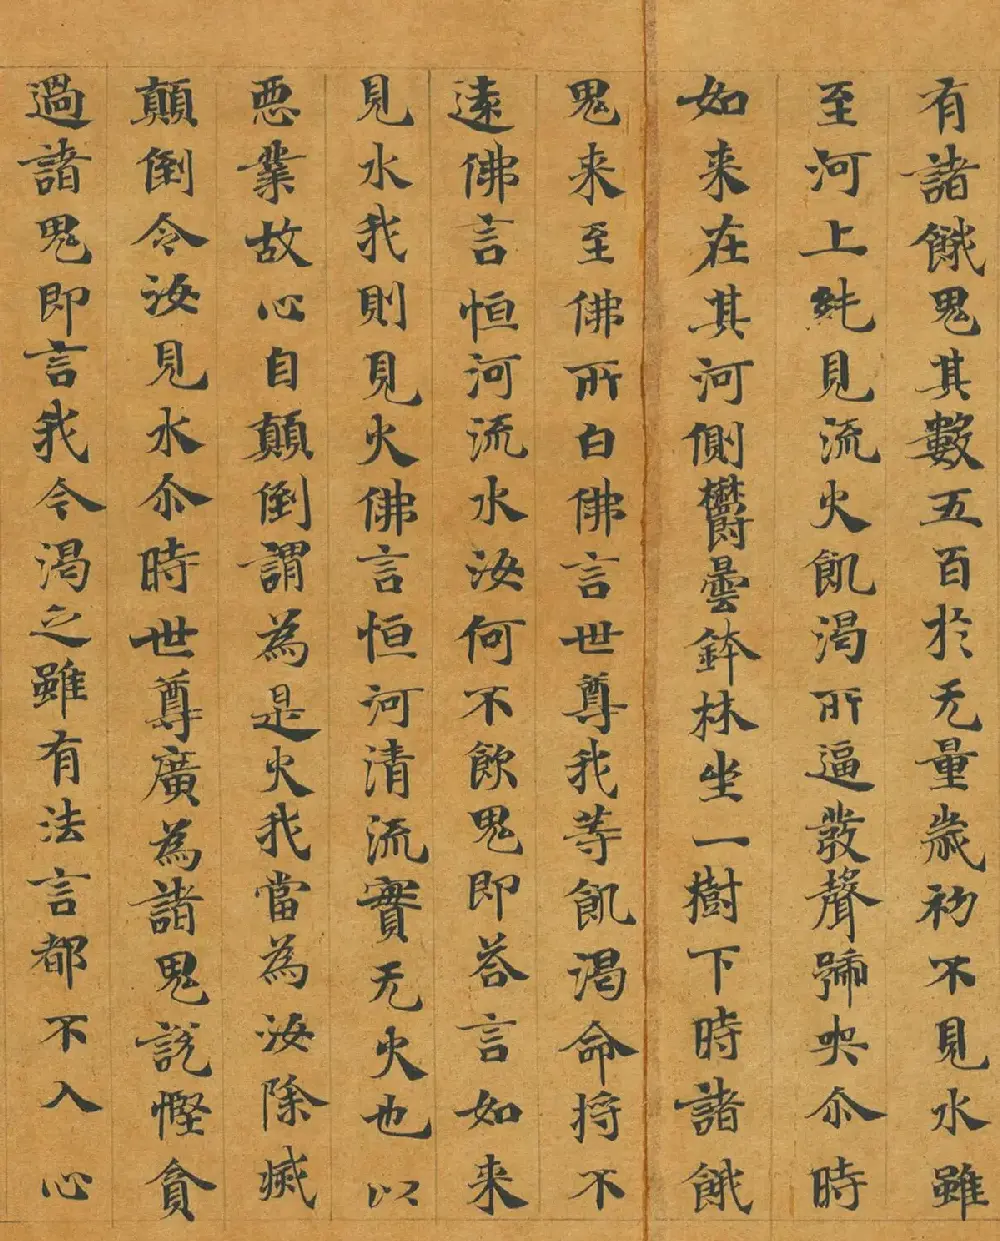 有諸餓鬼其數五百於无量歲初不見水雖
至河上純見流火飢渴所逼發聲號哭尒時
如来在其河側鬱曇鉢林坐一樹下時諸餓
鬼来至佛所白佛言世尊我等飢渴命将不
遠佛言恒河流水汝何不飲鬼即荅言如来
見水我則見火佛言恒河清流實无火也以
惡業故心自顛倒謂為是火我當為汝除滅
顛倒令汝見水尒時世尊廣為諸鬼説慳貪
過諸鬼即言我今渴乏雖有法言都不入心